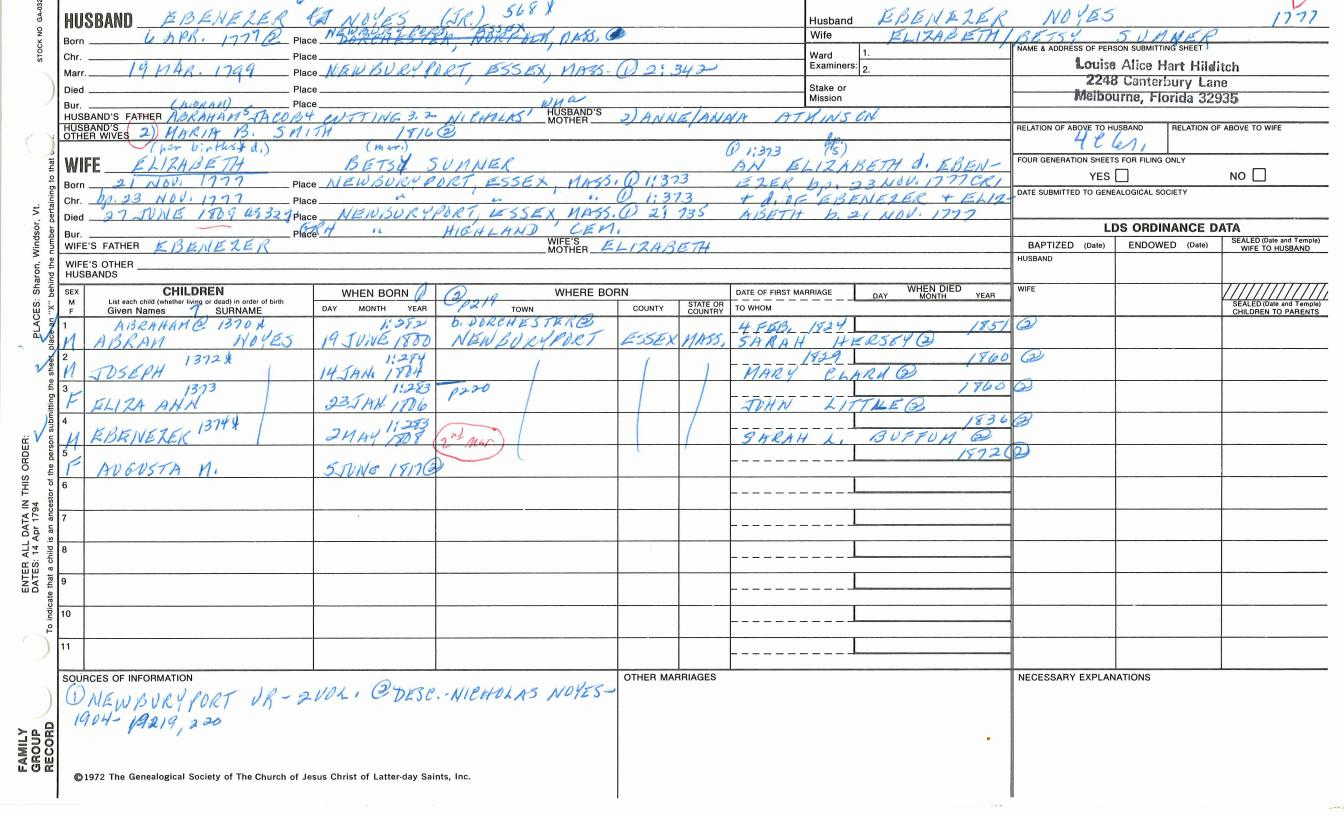 HUSBAND EBENEZER NOYES (JR.) 568 X
Born 6 APR. 1777② Place NEWBURYPORT, ESSEX DORCHESTER, NORFOLK, MASS.
Chr. Place
Marr. 19 MAR. 1799 Place NEWBURYPORT, ESSEX, MASS. ① 2:342
Died Place
Bur. Place
HUSBAND'S FATHER ABRAHAM⁵ JACOB4 CUTTING 3.2 NICHOLAS' HUSBAND'S MOTHER 2) ANNE/ANNA ATKINSON
HUSBAND'S OTHER WIVES 2) MARIA B. SMITH 1816②
(her birth & d.) (mar.)
WIFE ELIZABETH BETSY SUMNER
① 1:373
AN ELIZABETH d. EBEN-
Born 21 NOV. 1777 Place NEWBURYPORT, ESSEX, MASS. ① 1:373 EZER bp. 23 NOV. 1777 CR1
Chr. bp. 23 NOV. 1777 Place " " " ① 1:373 + d. OF EBENEZER + ELIZ-
Died 27 JUNE 1809 Place NEWBURYPORT, ESSEX, MASS. ① 2:735 ABETH b. 21 NOV. 1777
Bur. Place " HIGHLAND CEM.
WIFE'S FATHER EBENEZER WIFE'S MOTHER ELIZABETH
WIFE'S OTHER HUSBANDS
Husband EBENEZER NOYES 1777
Wife ELIZABETH/BETSY SUMNER
Ward Examiners: 1.
2.
Stake or Mission
NAME & ADDRESS OF PERSON SUBMITTING SHEET
Louise Alice Hart Hilditch
2248 Canterbury Lane
Melbourne, Florida 32935
RELATION OF ABOVE TO HUSBAND RELATION OF ABOVE TO WIFE
FOUR GENERATION SHEETS FOR FILING ONLY
YES NO
DATE SUBMITTED TO GENEALOGICAL SOCIETY
LDS ORDINANCE DATA
BAPTIZED (Date) ENDOWED (Date) SEALED (Date and Temple) WIFE TO HUSBAND
HUSBAND
WIFE
SEALED (Date and Temple) CHILDREN TO PARENTS
SEX M F
CHILDREN
List each child (whether living or dead) in order of birth
Given Names SURNAME
WHEN BORN ①
DAY MONTH YEAR
② p219
WHERE BORN
TOWN COUNTY STATE OR COUNTRY
DATE OF FIRST MARRIAGE
TO WHOM
WHEN DIED
DAY MONTH YEAR
1 ABRAHAM② 1370X 1:282 b. DORCHESTER② 4 FEB. 1824 1851 ②
M ABRAM NOYES 19 JUNE 1800 NEWBURYPORT ESSEX MASS. SARAH HERSEY②
2 1372X 1:284 1829 1860 ②
M JOSEPH 14 JAN. 1804 MARY CLARK②
3 1373 1:283 p220 1860 ②
F ELIZA ANN 23 JAN 1806 JOHN LITTLE②
4 1374X 1:283 1836 ②
M EBENEZER 2 MAY 1808 2nd Mar. SARAH L. BUFFUM ②
5 1872 ②
F AUGUSTA M. 5 JUNE 1817②
6
7
8
9
10
11
SOURCES OF INFORMATION
① NEWBURYPORT VR - 2 VOL. ② DESC. - NICHOLAS NOYES -
1904 - p219, 220
OTHER MARRIAGES
NECESSARY EXPLANATIONS
©1972 The Genealogical Society of The Church of Jesus Christ of Latter-day Saints, Inc.
PLACES: Sharon, Windsor, Vt.
ENTER ALL DATA IN THIS ORDER:
DATES: 14 Apr 1794
To indicate that a child is an ancestor of the person submitting the sheet, place an "X" behind the number pertaining to that
FAMILY GROUP RECORD